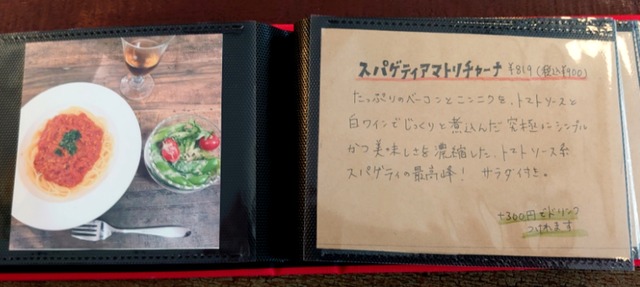 スパゲティアマトリチャーナ ¥819(税込¥900)
たっぷりのベーコンとニンニクを、トマトソースと
白ワインでじっくりと煮込んだ究極にシンプル
かつ美味しさを濃縮した、トマトソース系
スパゲティの最高峰! サラダ付き。
+300円でドリンク
つけれます